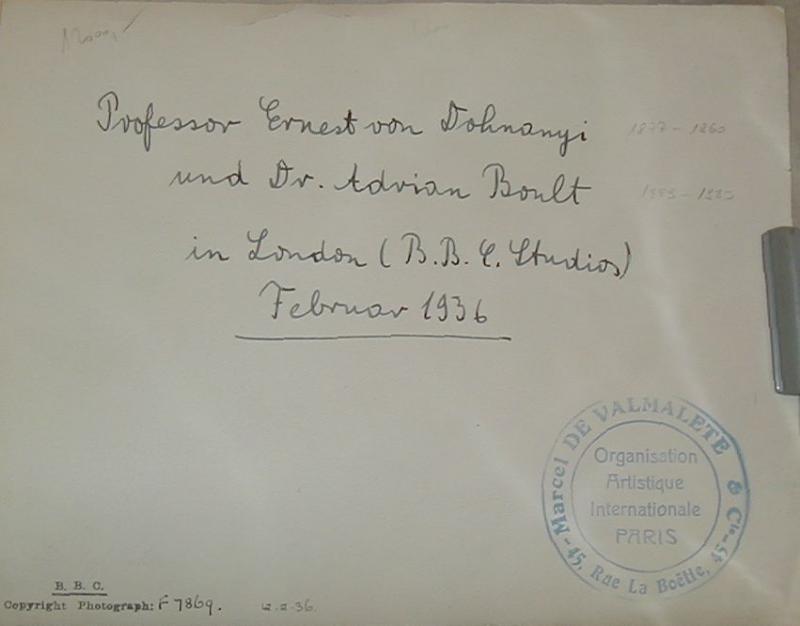 Professor Ernest von Dohnanyi 1877 - 1960
und Dr. Adrian Boult
in London (B.B.C. Studios)
Februar 1936
Marcel DE VALMALETE & Cie - 45, Rue La Boëtie, 45 -
Organisation
Artistique
Internationale
PARIS
B. B. C.
Copyright Photograph: F 7869.